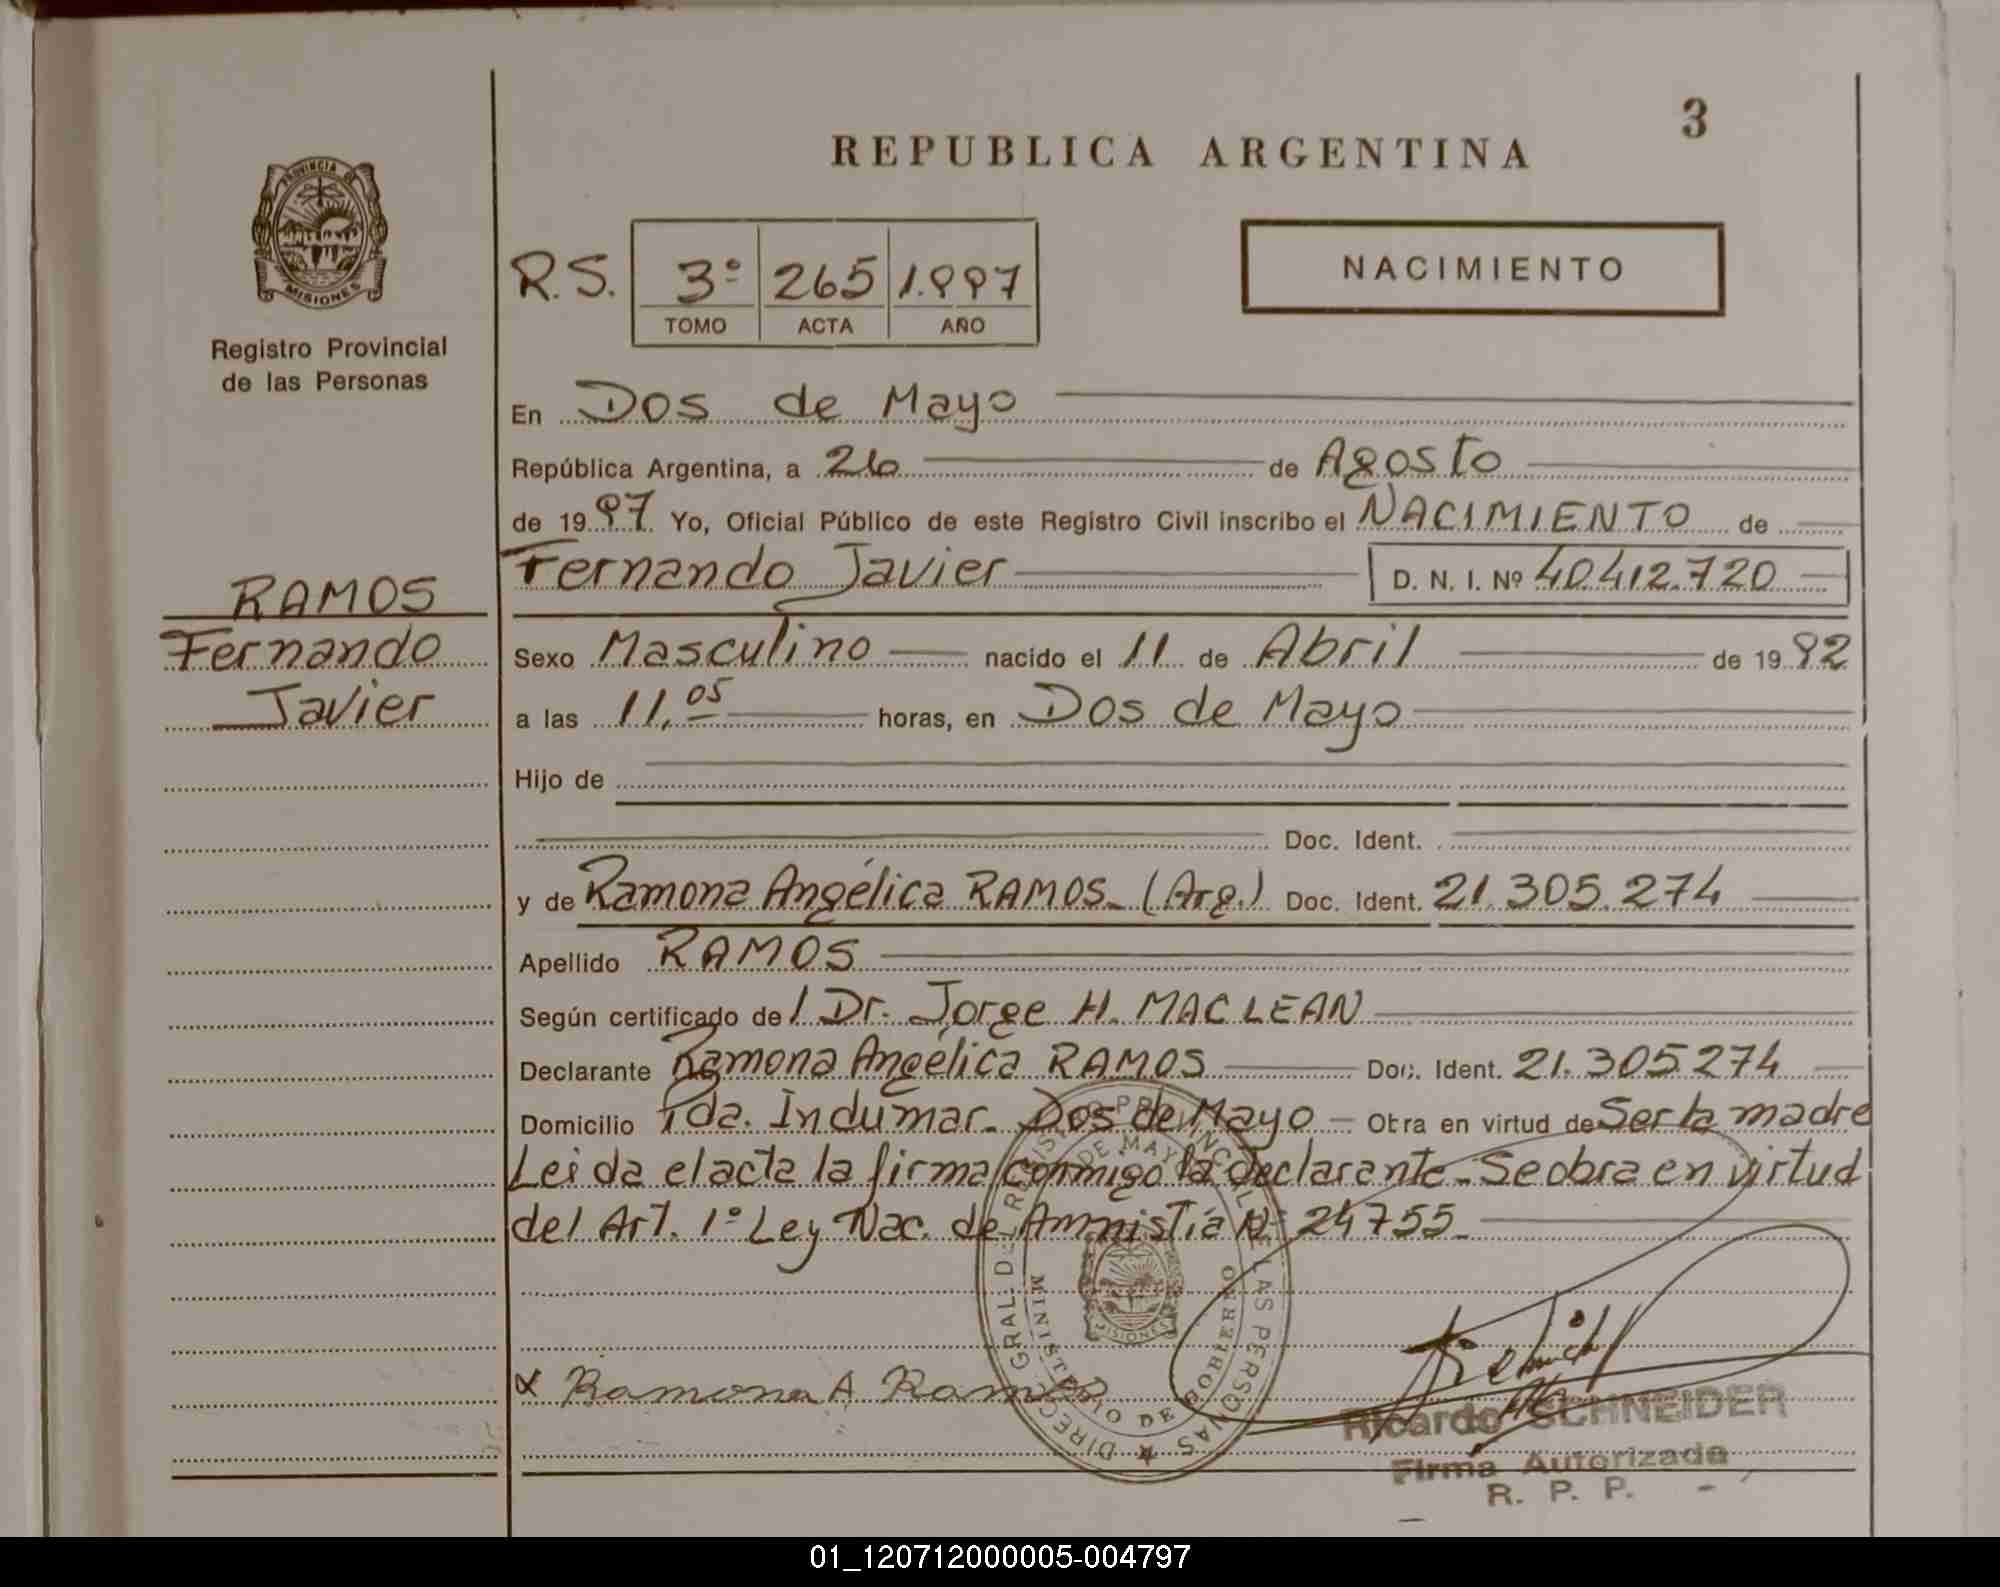 3
REPUBLICA ARGENTINA
PROVINCIA DE
MISIONES
Registro Provincial
de las Personas
R.S. 3º 265 1.997
TOMO ACTA AÑO
NACIMIENTO
En Dos de Mayo
República Argentina, a 26 de Agosto
de 1997 Yo, Oficial Público de este Registro Civil inscribo el NACIMIENTO de
Fernando Javier D. N. I. Nº 40.412.720
RAMOS
Fernando
Javier
Sexo Masculino nacido el 11 de Abril de 1992
a las 11,05 horas, en Dos de Mayo
Hijo de
Doc. Ident.
y de Ramona Angélica RAMOS_ (Arg.) Doc. Ident. 21.305.274
Apellido RAMOS
Según certificado de l Dr. Jorge H. MAC LEAN
Declarante Ramona Angélica RAMOS Doc. Ident. 21.305.274
Domicilio Pda. Indumar_ Dos de Mayo Obra en virtud de Ser la madre
Leida el acta la firma conmigo la declarante_ Se obra en virtud
del Art. 1º Ley Nac. de Amnistía Nº 24755_
DIRECC. GRAL. DEL REGISTRO PROVINCIAL DE LAS PERSONAS
DOS DE MAYO
MINISTERIO DE GOBIERNO
MISIONES
x Ramona A Ramos
Ricardo SCHNEIDER
Firma Autorizada
R. P. P.
01_120712000005-004797